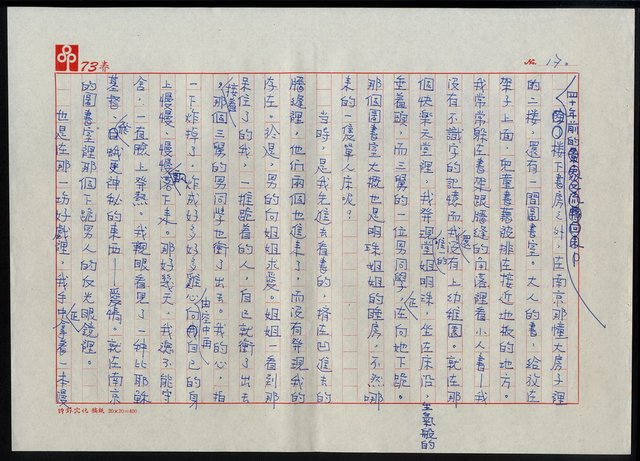 73春
No. 17.
樓下書房之外，在南京那懂大房子裡
的二樓，還有一間圖書室。大人的書，給放在
架子上面，兒童書籍就排在接近地板的地方。
我常常躲在書架跟牆縫的角落裡看小人書——我
沒有不識字的記憶而我沒有上幼稚園。就在那
個快樂天堂裡，我發現堂姐明珠，坐在床沿，生氣般的
垂著頭，而三舅的一位男同學，正向她下跪。
那個圖書室大概也是明珠姐姐的睡房，不然哪
來的一張單人床呢？
當時，是我先進去看書的，擠在凹進去的
牆縫裡，他們兩個也進來了，而沒有發現我的
存在。於是，男的向姐姐求愛。姐姐一看到那
呆住了的我，一推跪著的人，自己就衝了出去
。接著那個三舅的男同學也衝了出去。我的心，拍
一下炸掉了，炸成好多好多雜心由空中再向自己的身
上慢慢、慢慢飄落下來。那好幾天，我還不能守
舍，一直臉上發熱。我親眼看見了一種比耶穌
基督更神秘的東西——愛情。就在南京
的圖書室裡那個下跪男人的反光眼鏡裡。
也是在那一切好戲裡，我手中正拿著一本漫
時報文化 稿紙 20×20=400